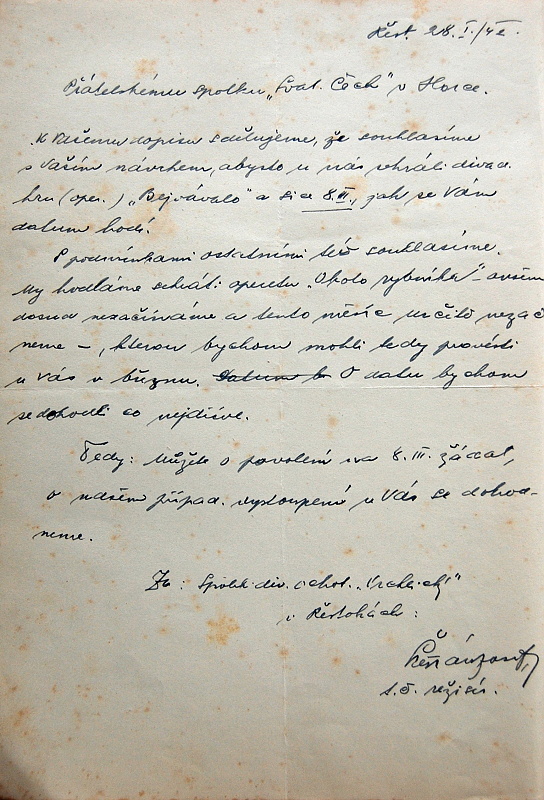 Řest. 28.I./42.
Přátelskému spolku „Svat. Čech" v Horce.
K Vašemu dopisu sdělujeme, že souhlasíme
s Vaším návrhem, abyste u nás sehráli divad.
hru (oper.) „Bejvávalo" a sice 8.III., jak se Vám
datum hodí.
S podmínkami ostatními též souhlasíme.
My hodláme sehráti operetu „Okolo rybníka" – ovšem
dosud nezačínáme a tento měsíc určitě nezač
neme –, kterou bychom mohli tedy provésti
u Vás v březnu. Datum b O datu bychom
se dohodli co nejdříve.
Tedy: Můžete o povolení na 8.III. žádat,
o našem případ. vystoupení u Vás se dohod-
neme.
Za: Spolek div. ochot. „Vrchlický"
v Řestokách:
t.č. režisér.